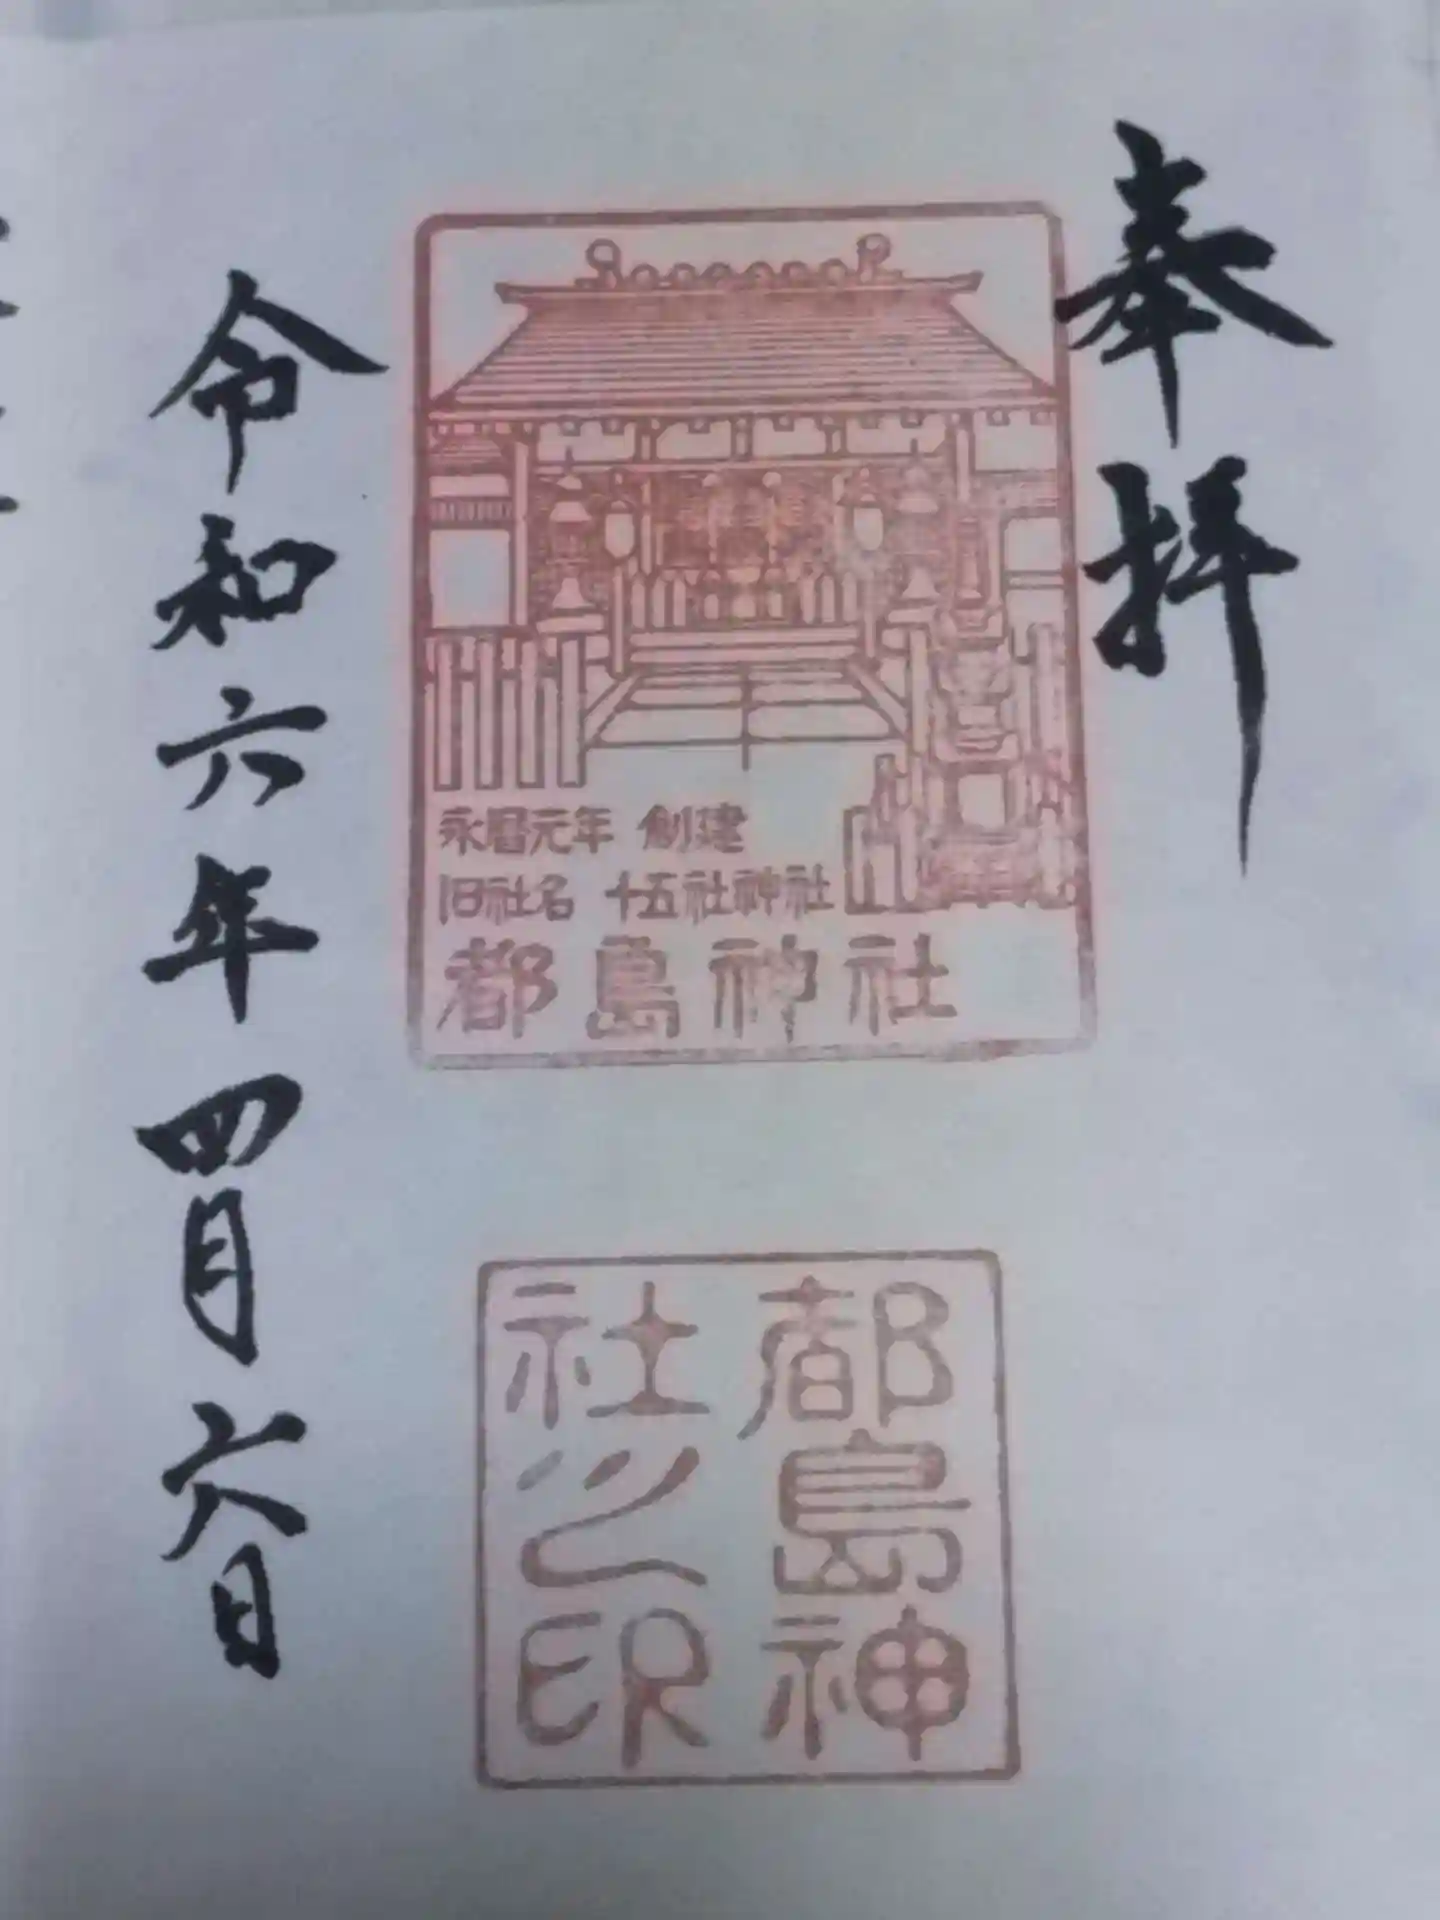 奉拝
永暦元年 創建
旧社名 十五社神社
都島神社
都島神
社之印
令和六年四月六日